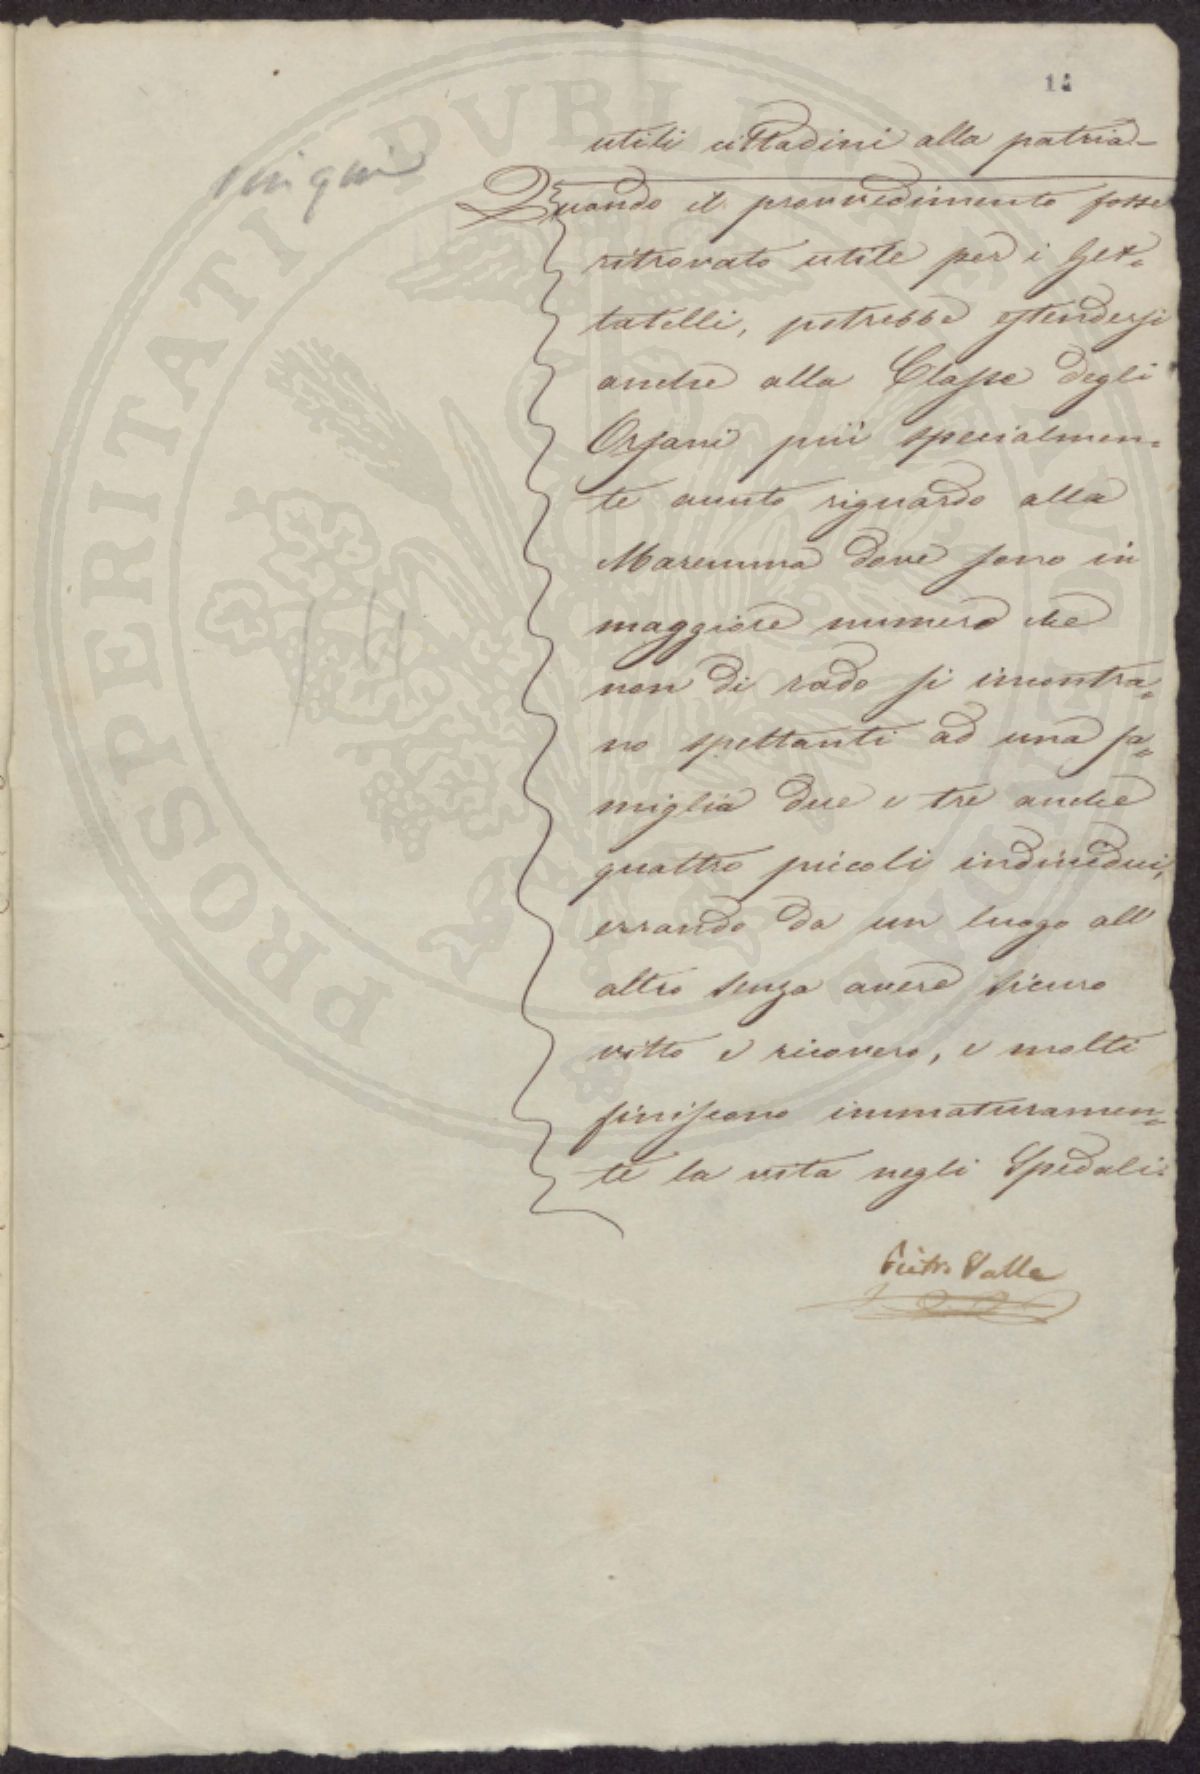 14
utili cittadini alla patria-
sin qui
Quando il provvedimento fosse
ritrovato utile per i Get=
tatelli, potrebbe estendersi
anche alla Classe degli
Orfani più specialmen=
te avuto riguardo alla
Maremma dove sono in
maggiore numero che
non di rado si incontra=
no spettanti ad una fa=
miglia due e tre anche
quattro piccoli individui,
errando da un luogo all'
altro senza avere sicuro
vitto e ricovero, e molti
finiscono immaturamen=
te la vita negli Spedali:
Pietro Valle
PROSPERITATI PVBLICAE